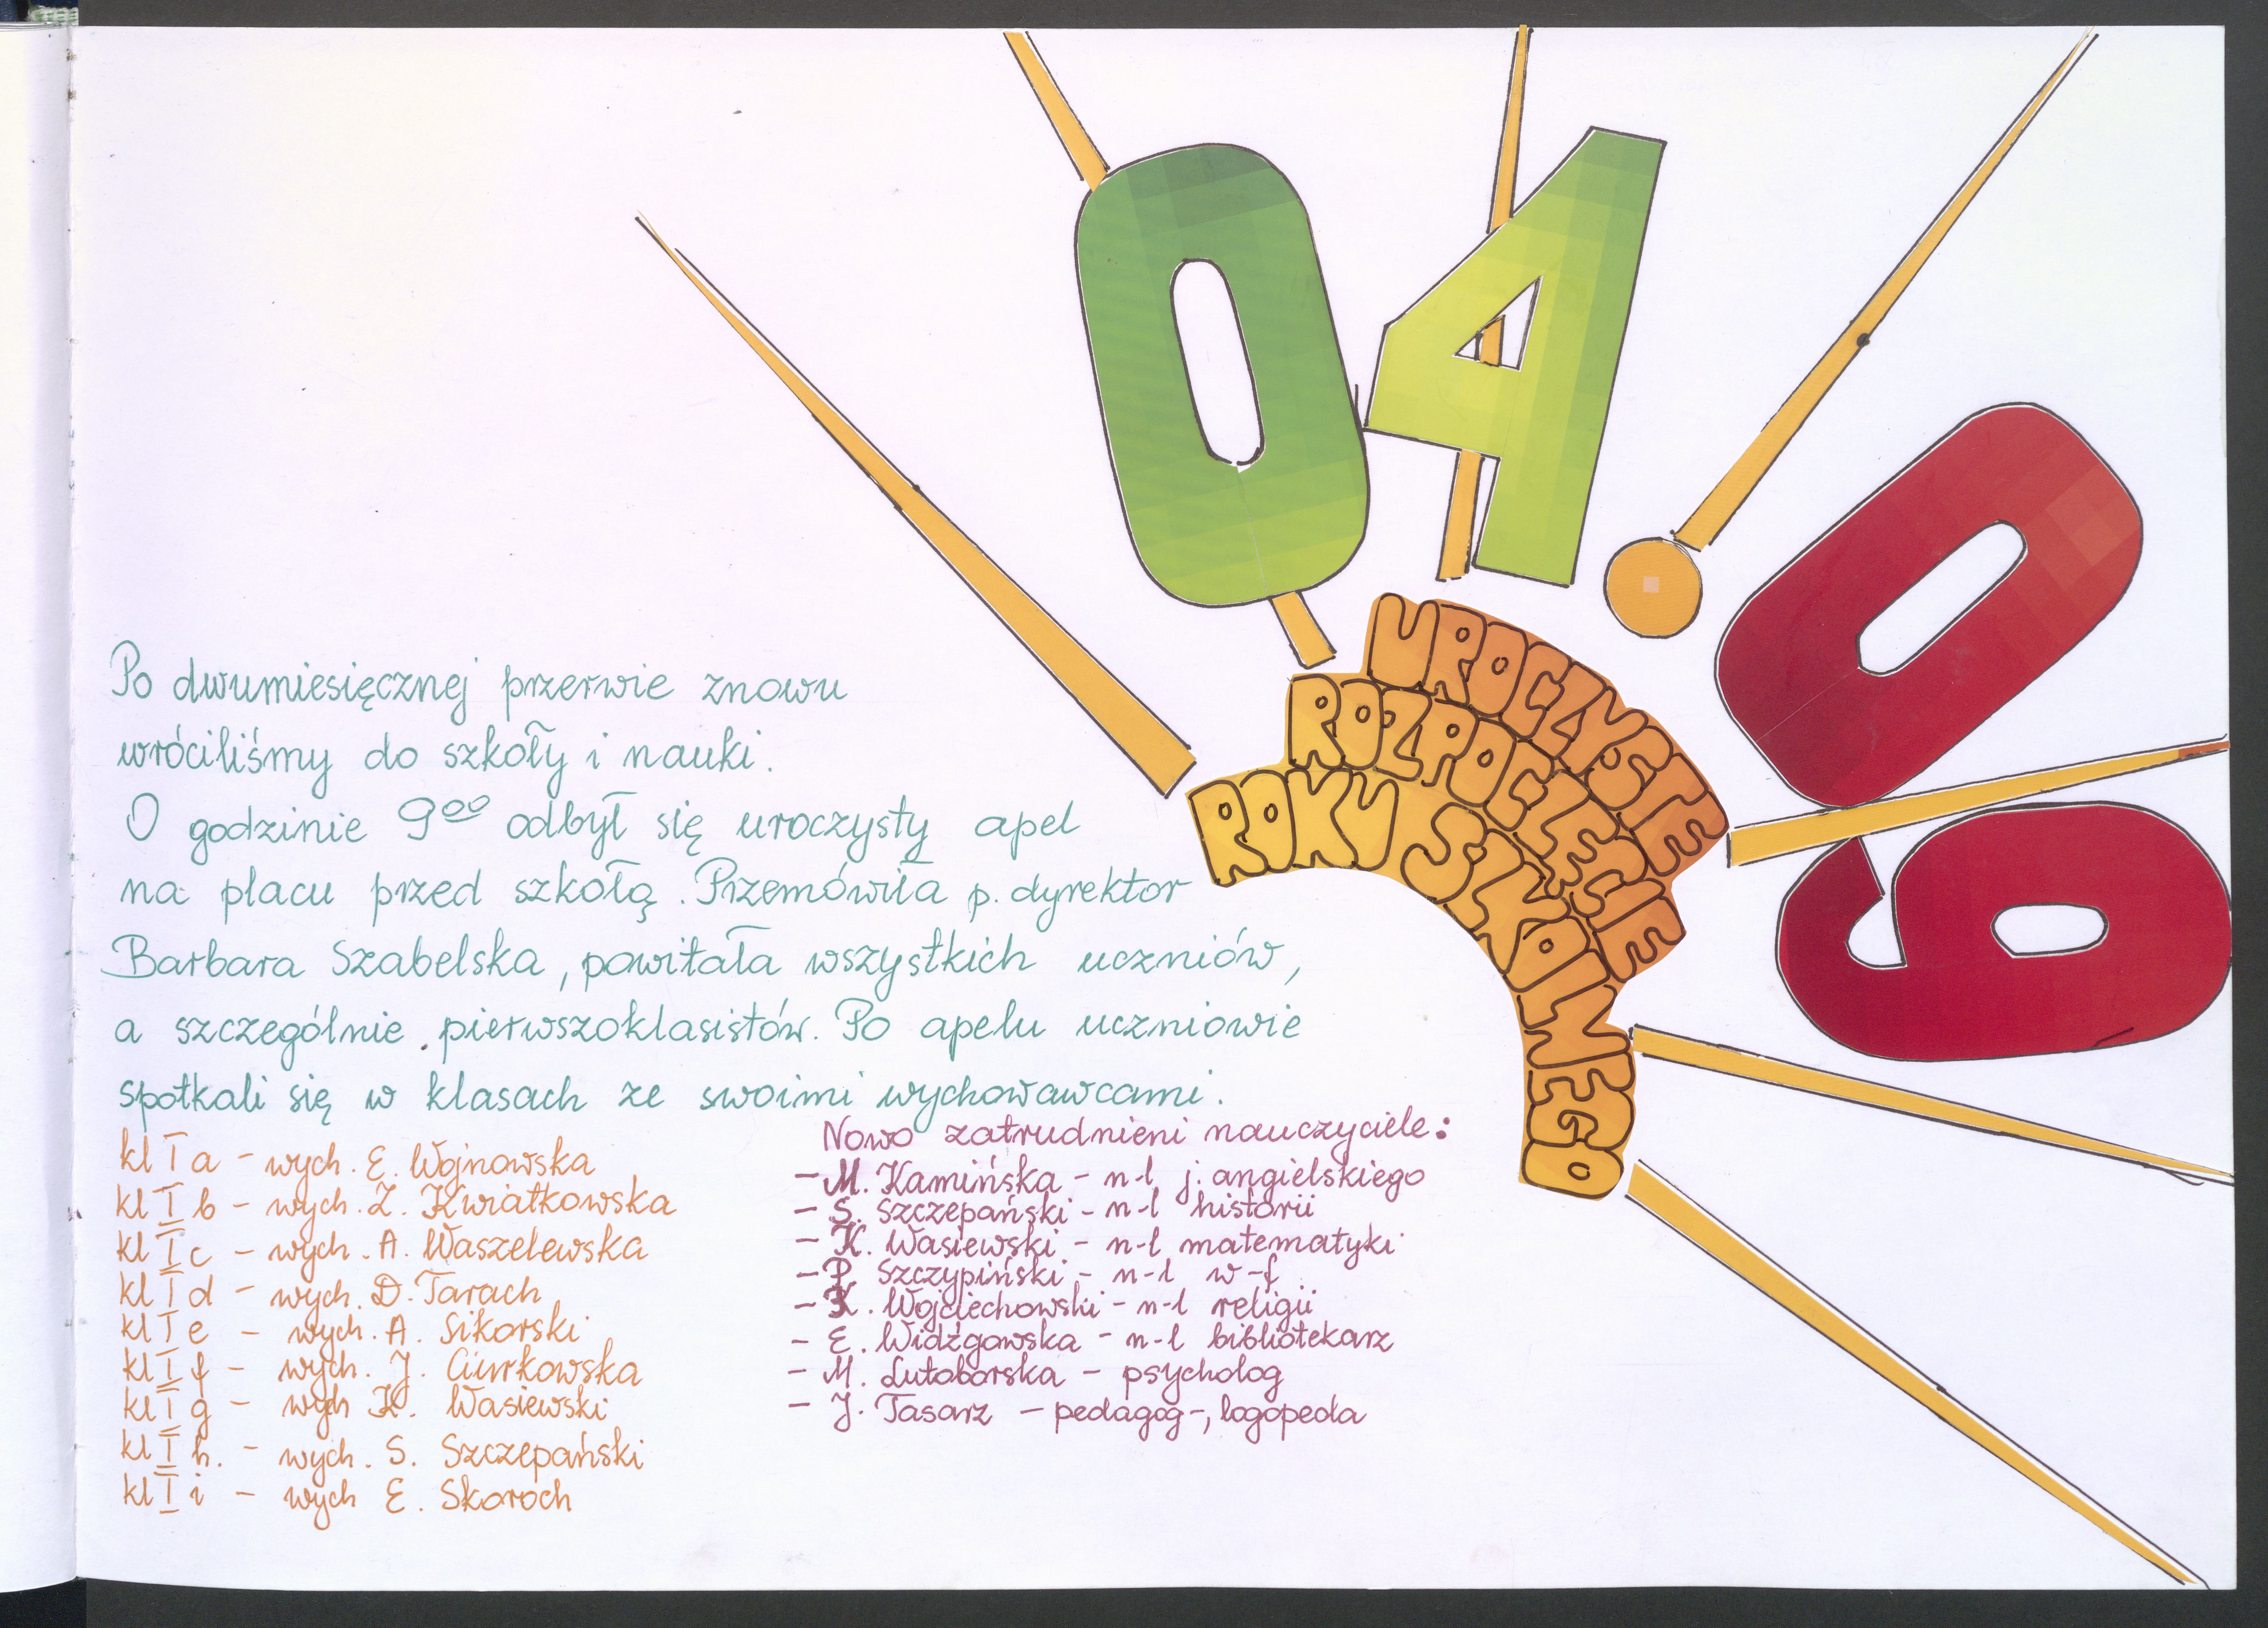 04.09
UROCZYSTE
ROZPOCZĘCIE
ROKU SZKOLNEGO
Po dwumiesięcznej przerwie znowu
wróciliśmy do szkoły i nauki.
O godzinie 9⁰⁰ odbył się uroczysty apel
na placu przed szkołą. Przemówiła p. dyrektor
Barbara Szabelska, powitała wszystkich uczniów,
a szczególnie pierwszoklasistów. Po apelu uczniowie
spotkali się w klasach ze swoimi wychowawcami.
kl I a - wych. E. Wojnowska
kl I b - wych. Z. Kwiatkowska
kl I c - wych. A. Waszelewska
kl I d - wych. D. Tarach
kl I e - wych. A. Sikorski
kl I f - wych. J. Ciurkowska
kl I g - wych K. Wasiewski
kl I h. - wych. S. Szczepański
kl I i - wych E. Skoroch
Nowo zatrudnieni nauczyciele:
- M. Kamińska - n-l j. angielskiego
- S. Szczepański - n-l historii
- K. Wasiewski - n-l matematyki
- P. Szczypiński - n-l w-f
- K. Wojciechowski - n-l religii
- E. Widźgowska - n-l bibliotekarz
- M. Lutoborska - psycholog
- J. Tasarz - pedagog-, logopeda